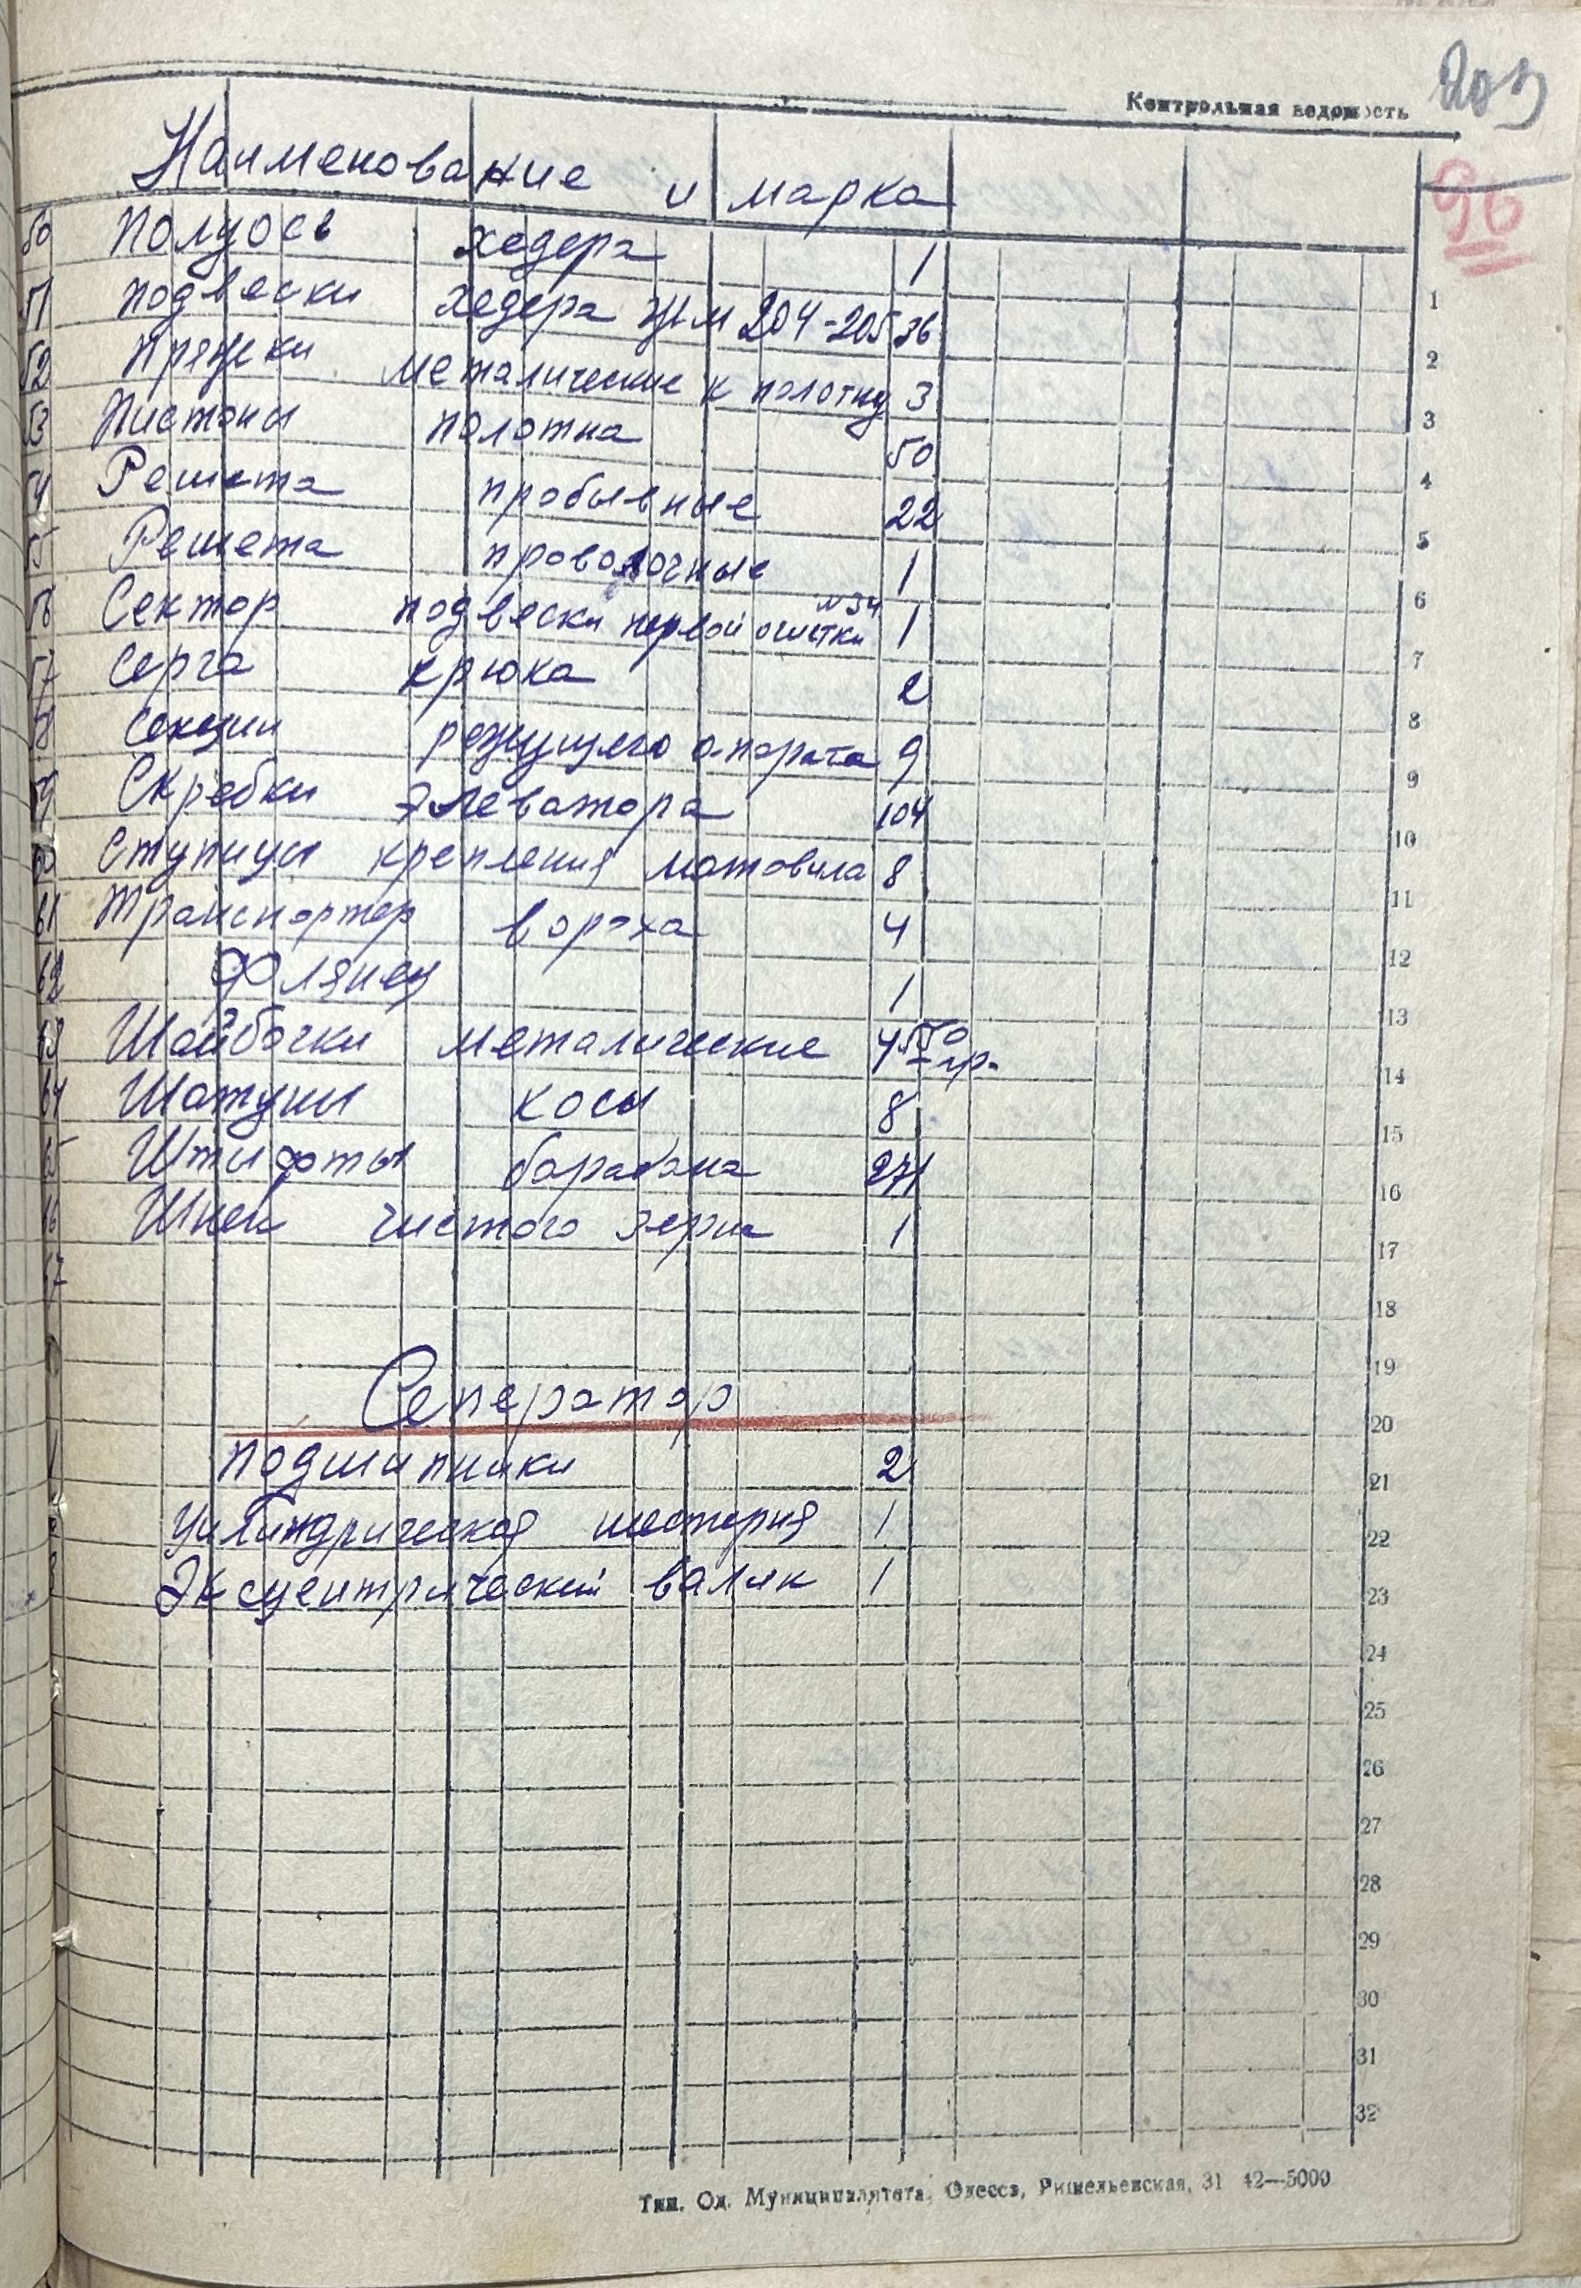 203
Контрольная ведомость
96
Наименование и марка
50 Полуось хедера 1
51 Подвески хедера ЖМ 204-205 36
52 Пряжки металические к полотну 3
53 Пистоны полотна 50
54 Решета пробывные 22
55 Решета проволочные 1
56 Сектор подвески первой очистки №34 1
57 Серга крюка 2
58 Секции режущего апарата 9
59 Скребки элеватора 104
60 Ступицы крепления мотовила 8
61 Транспортер вораха 4
62 Флянец 1
63 Шайбочки металические 4550 гр.
64 Шатуны косы 8
65 Штифты барабана 271
66 Шнек чистого зерна 1
67
Сеператор
Подшипники 2
Цилиндрическая шестерня 1
Эксцентрический валик 1
1
2
3
4
5
6
7
8
9
10
11
12
13
14
15
16
17
18
19
20
21
22
23
24
25
26
27
28
29
30
31
32
Тип. Од. Муниципалитета, Одесса, Ришельевская, 31 42—5000